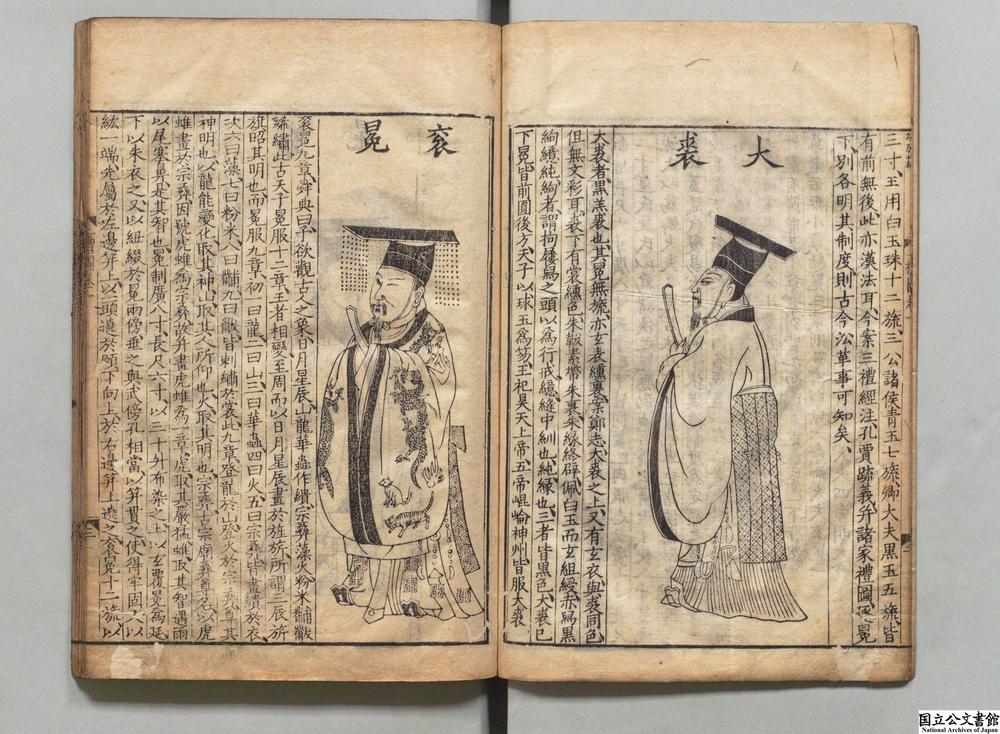 三寸、王用白玉珠十二旒、三公諸侯青玉七旒、卿大夫黑玉五旒、皆
有前無後、此亦漢法耳、今案三禮經注孔賈疏義、幷諸家禮圖、逐冕
下別各明其制度、則古今沿革事可知矣、
大裘
大裘者、黑羔裘也、其冕無旒、亦玄表纁裏、案鄭志、大裘之上、又有玄衣、與裘同色、
但無文彩耳、裘下有裳纁色、朱韍素帶朱裏、朱綠終辟、佩白玉而玄組綬、赤舄黑
絇繶純、絇者謂拘屨舄之頭、以為行戒、繶縫中紃也、純緣也、三者皆黑色、大裘已
下冕、皆前圓後方、天子以球玉為笏、王祀昊天上帝、五帝崐崘神州皆服大裘
袞冕
袞冕九章、舜典曰、予欲觀古人之象、日月星辰、山龍華蟲作繢、宗彝藻火粉米黼黻
絺繡、此古天子冕服十二章、王者相變、至周而以日月星辰畫於旌旂、所謂三辰旂
旗昭其明也、而冕服九章、初一曰龍、二曰山、三曰華蟲、四曰火、五曰宗彝、皆畫繢於衣、
次六曰藻、七曰粉米、八曰黼、九曰黻、皆刺繡於裳、此九章、登龍於山、登火於宗彝、尊其
神明也、以龍能變化取其神、山取其人所仰也、火取其明也、宗彝古宗廟彝尊名、以虎
蜼畫於宗彝、因號虎蜼為宗彝、故幷畫虎蜼為一章、虎取其嚴猛、蜼取其智、遇雨
以尾塞鼻、是其智也、冕制廣八寸、長尺六寸、以三十升布染之、上以玄覆、冕為延
下以朱衣之、又以紐綴於冕、兩傍垂之、與武傍孔相當、以笄貫之、使得牢固、又以
紘一端先屬於左邊笄上、以一頭遶於頤下、向上於右邊笄上遶之、袞冕十二旒、以
国立公文書館
National Archives of Japan